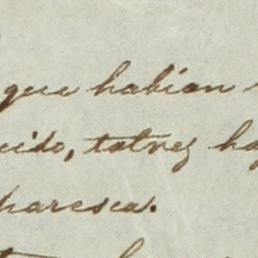 que habían
uido, talvez ha
pharesea.